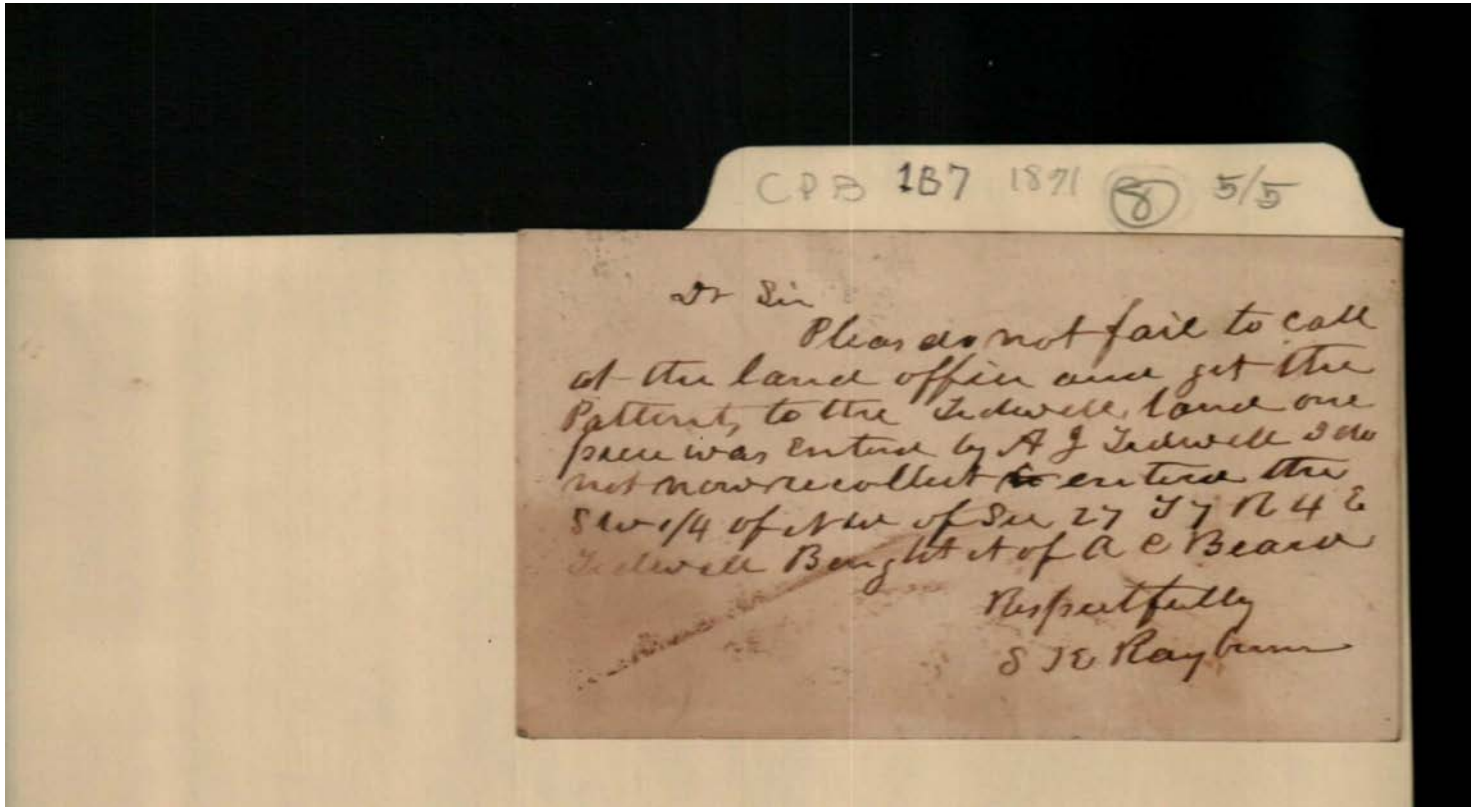 CPB 1B7 1871 8 5/5
Dr Sir
Pleas do not fail to call
at the land office and get the
Pattent, to the Tidwell land one
piece was enterd by A J Tidwell I do
not now recollect enterd the
S W 1/4 of N W of Sec 27 T 7 R 4 E
Tidwell Bought it of A C Beard
Respectfully
S K Rayburn